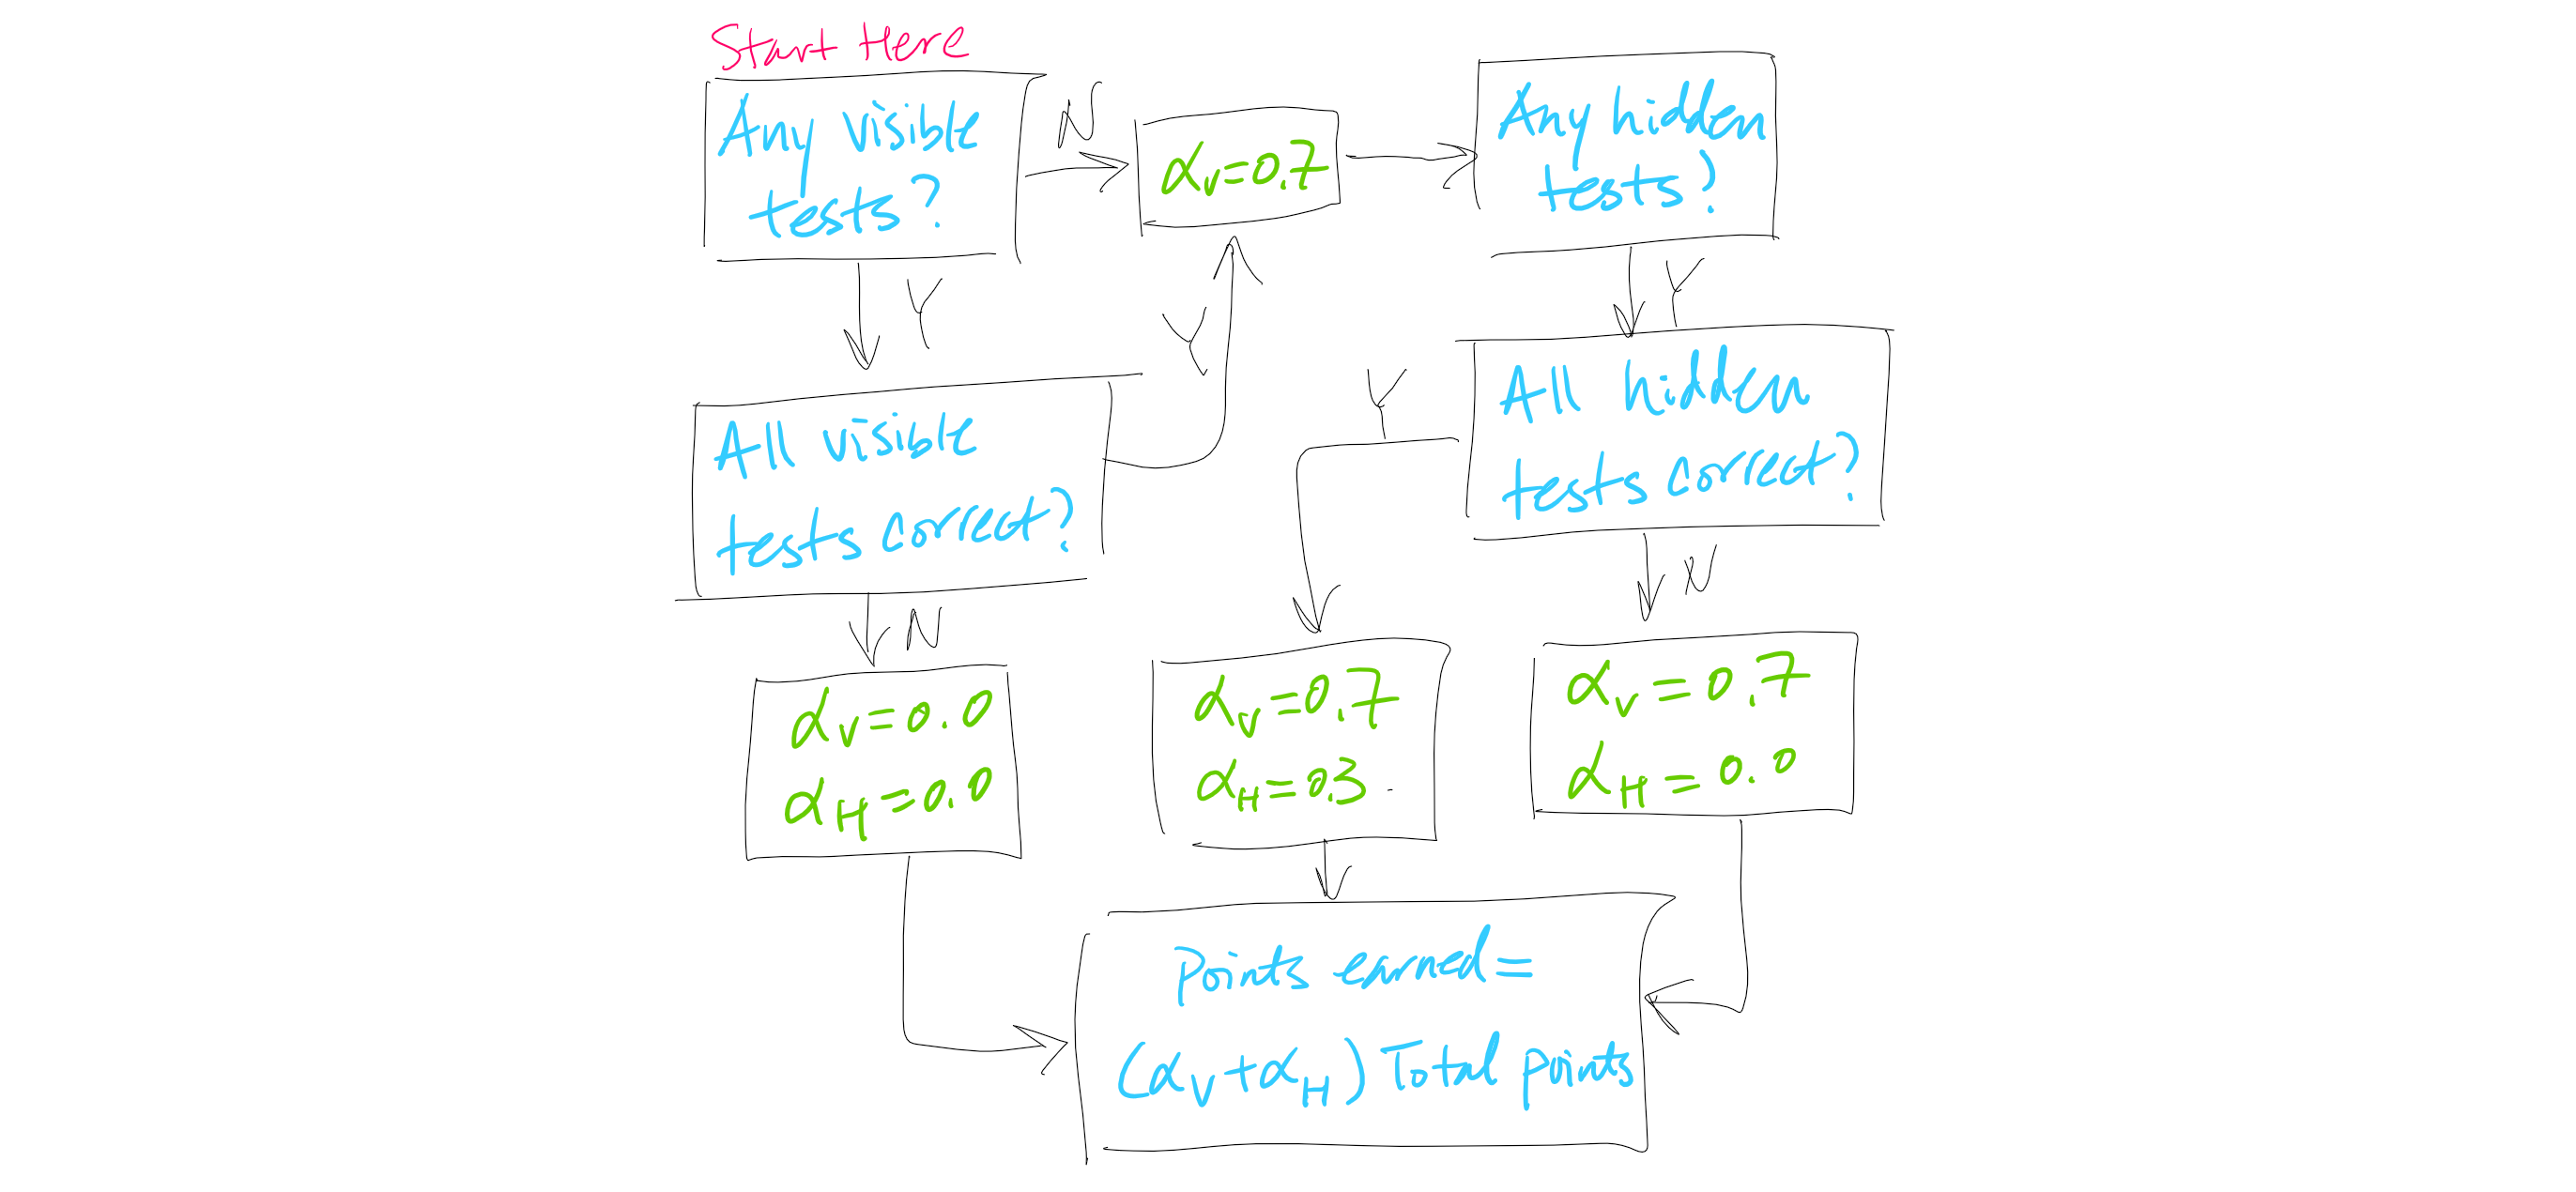 Start Here
Any visible
tests?
N
αV=0.7
Any hidden
tests?
Y
Y
Y
All visible
tests correct?
Y
All hidden
tests correct?
N
N
αV=0.0
αH=0.0
αV=0.7
αH=0.3
αV=0.7
αH=0.0
Points earned=
(αV+αH) Total points